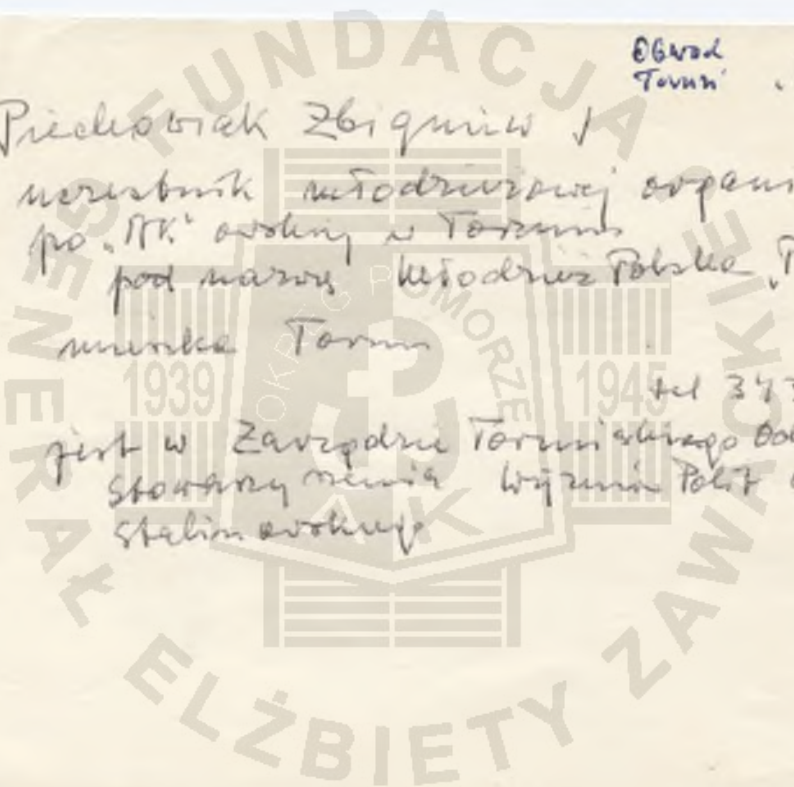 Obwód
Toruń
Piechowiak Zbigniew
uczestnik młodzieżowej organi
po "AK" owskiej w Toruniu
pod nazwą Młodzież Polska "P
mieszka Toruń
tel 343
jest w Zarządzie Toruńskiego Od
Stowarzyszenia Więźniów Polit
Stalinowskiego
FUNDACJA
GENERAŁ ELŻBIETY ZAWACKIEJ
OKRĘG POMORZE
1939
1945
AK